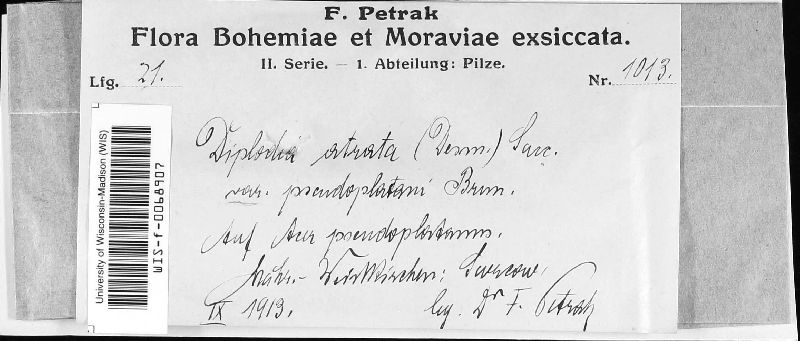 F. Petrak
Flora Bohemiae et Moraviae exsiccata.
II. Serie. — 1. Abteilung: Pilze.
Lfg. 21.
Nr. 1013.
Diplodia atrata (Desm.) Sacc.
var. pseudoplatani Brun.
Auf Acer pseudoplatanus.
Mähr.-Weisskirchen:
IX 1913.
leg. Dr F. Petrak
University of Wisconsin-Madison (WIS)
WIS-f-0068907